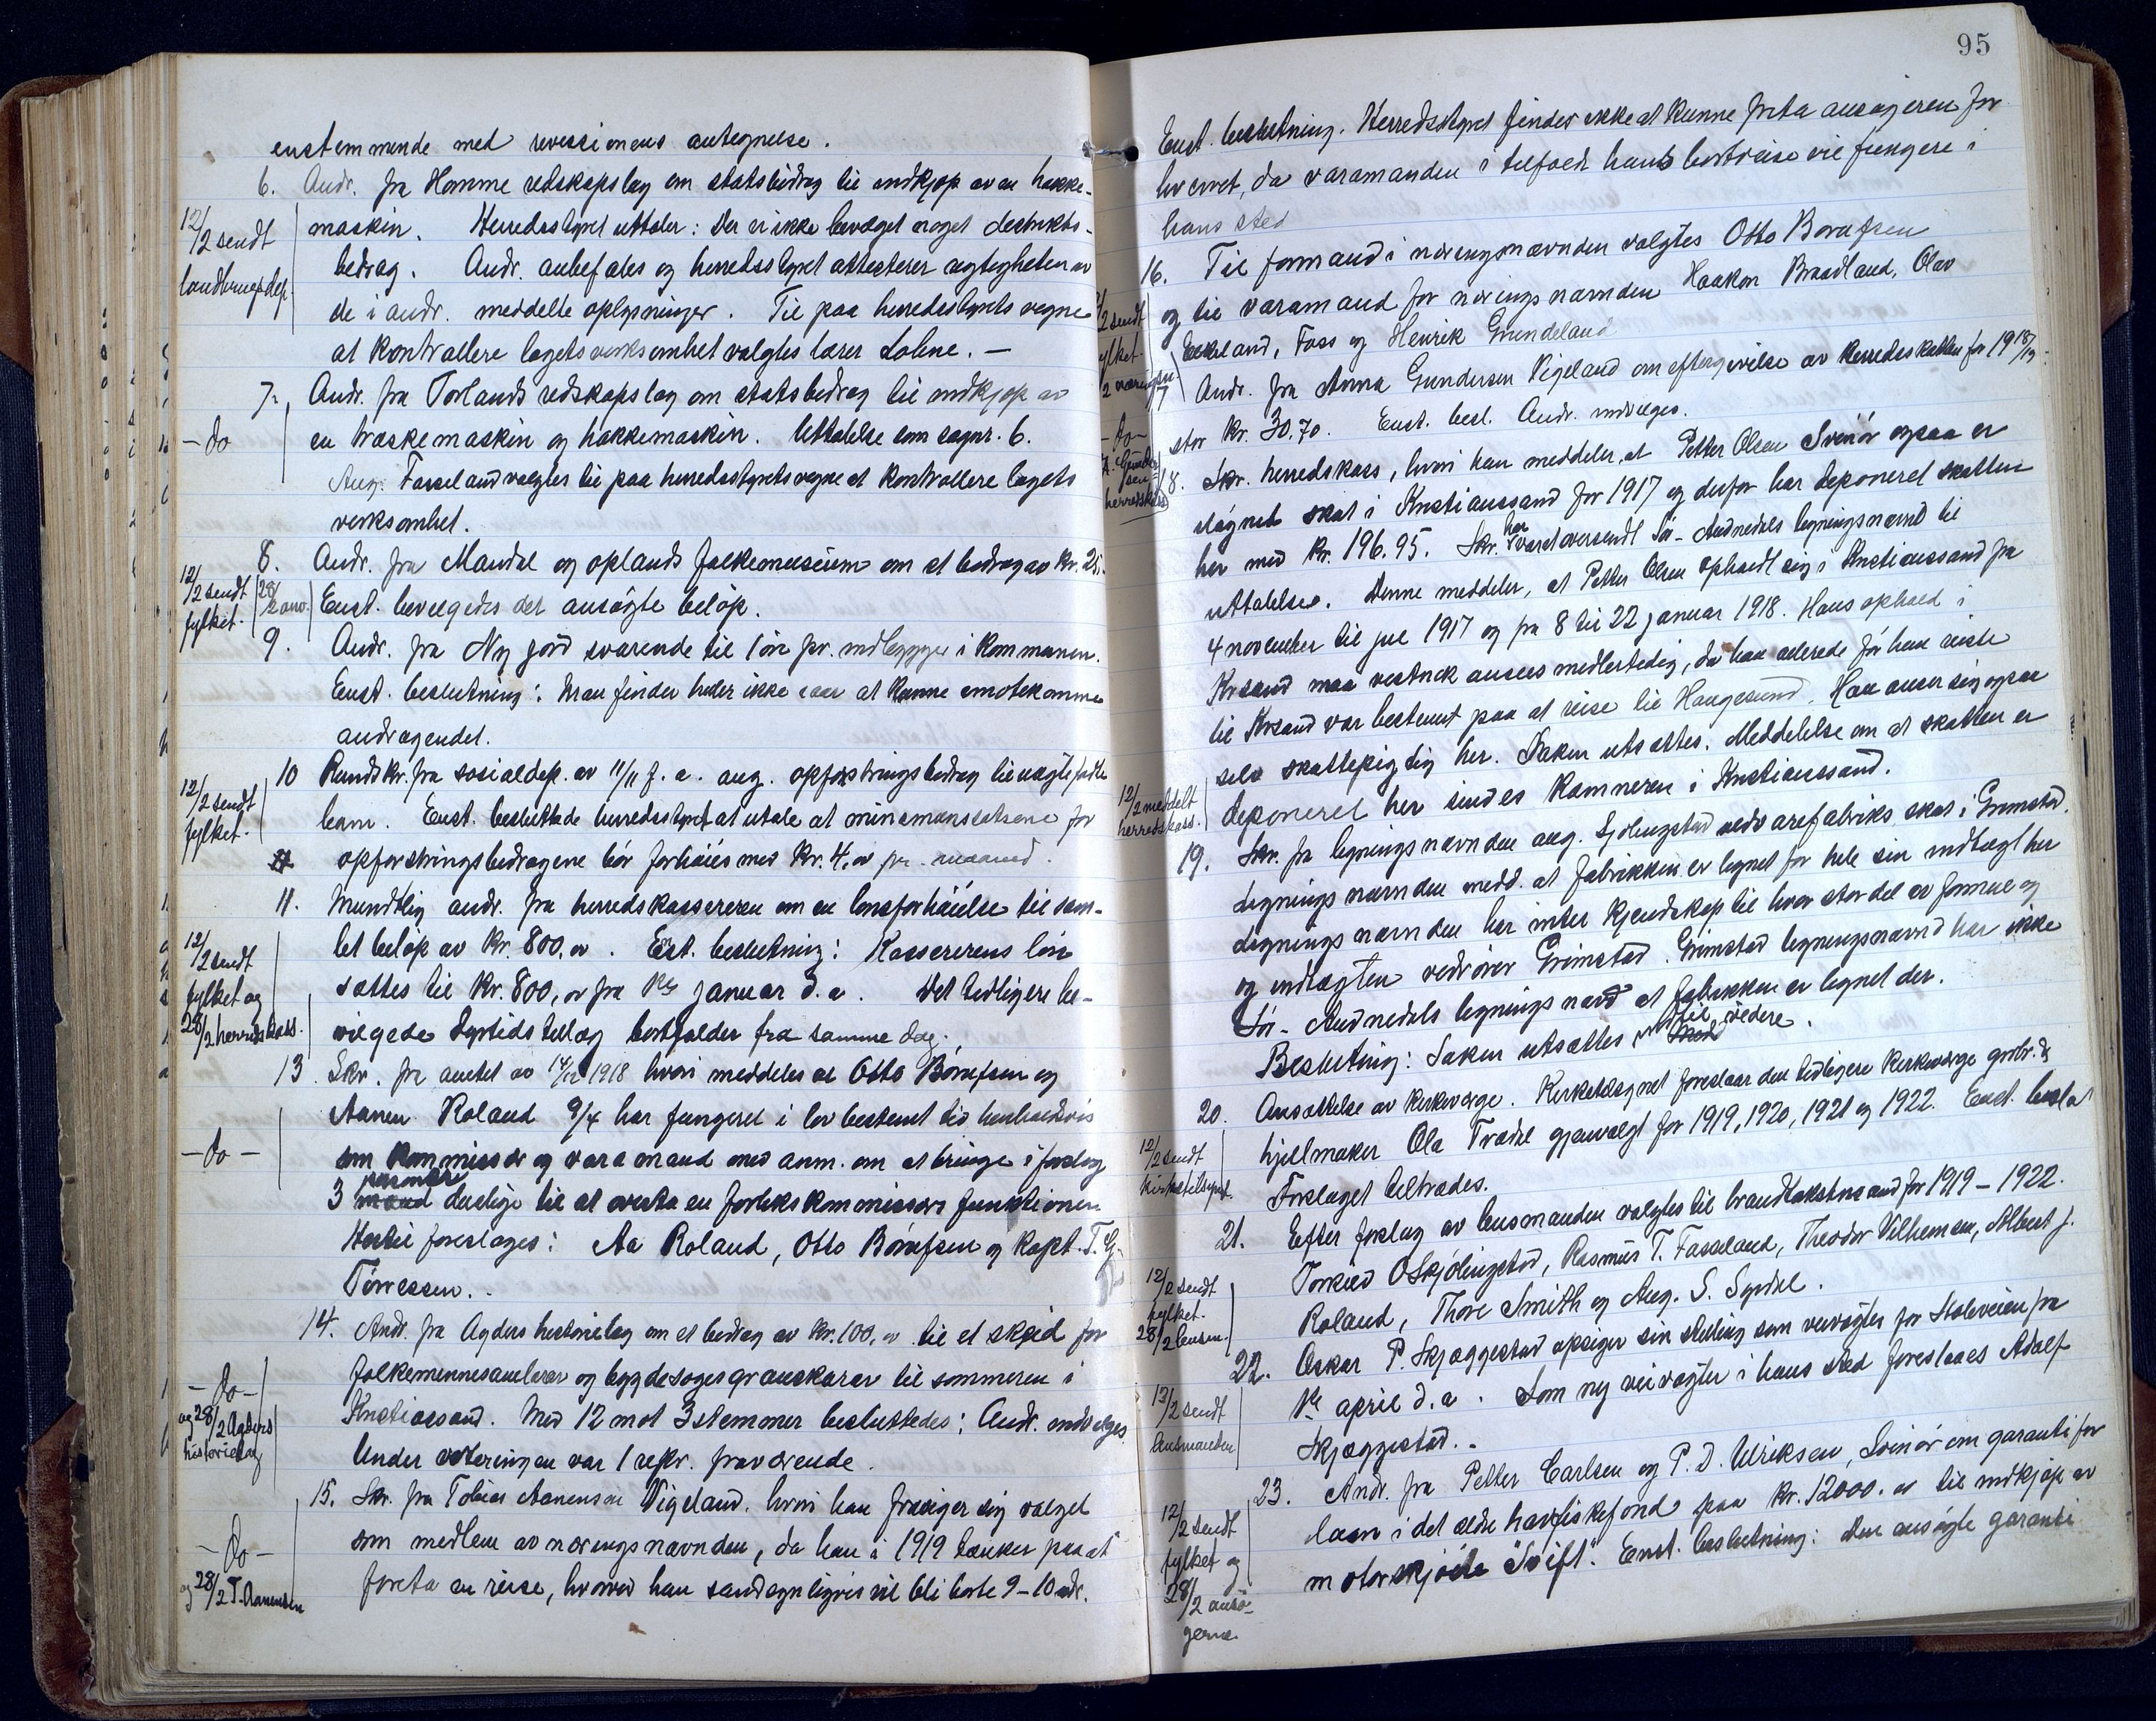 enstemmende med revissionens antegnelse.
6. Andr. fra Homme redskapslag om statsbidrag til indkjøp av en hakke-
12/2 sendt
landbrugsdep.
maskin. Herredsstyret uttaler: Der er ikke bevilget noget distrikts-
bidrag. Andr. anbefales og herredsstyret attesterer rigtigheten av
de i andr. meddelte oplysninger. Til paa herredsstyrets vegne
at kontrollere lagets verksomhet valgtes lærer Lohne. —
7. Andr. fra Torlands redskapslag om statsbidrag til indkjøp av
- do
en træskemaskin og hakkemaskin. Uttalelse som sagnr. 6.
Aug. Fasseland valgtes til paa herredsstyrets vegne at kontrollere lagets
verksomhet.
8. Andr. fra Mandal og oplands folkemuseum om et bidrag av kr. 25.-
12/2 sendt
fylket.
28/2 anv.
Enst. bevilgedes det ansøgte beløp.
9. Andr. fra Ny jord svarende til 1 øre pr. indbygger i kommunen.
Enst. beslutning: Man finder heller ikke iaar at kunne imøtekomme
andragendet.
10 Rundskr. fra sosialdep. av 11/11 f. a. ang. opfostringsbidrag til uegtefødte
12/2 sendt
fylket.
barn. Enst. besluttede herredsstyret at utale at minimumssatsene for
opfostringsbidragene bør forhøies med kr. 4,00 pr. maaned.
11. Mundtlig andr. fra herredskassereren om en lønsforhøielse til sam-
let beløp av kr. 800.00. Enst. beslutning: Kassererens løn
12/2 sendt
fylket og
28/2 herredskass.
sættes til kr. 800,00 fra 1ste januar d.a. Det tidligere be-
vilgede dyrtidstillæg bortfalder fra samme dag.
13. Skr. fra amtet av 14/12 1918 hvori meddeles at Otto Børufsen og
Aanen Roland 9/4 har fungeret i lovbestemt tid henholdsvis
- do -
som kommissær og varamand med anm. om at bringe i forslag
3 personer duelige til at overta en forlikskommissærs funktioner.
Hertil foreslages: Aa Roland, Otto Børufsen og kapt. T. G.
Tørressen.
14. Andr. fra Agders historielag om et bidrag av kr. 100.00 til et skeid for
- do -
og 28/2 Agders
historielag
folkeminnesamlarar og bygdesogegranskarar til sommeren i
Kristiansand. Med 12 mot 3 stemmer besluttedes: Andr. indvilges.
Under voteringen var 1 repr. fraværende.
15. Skr. fra Tobias Aanensen Vigeland, hvori han frasiger sig valget
- do -
og 28/2 T. Aanensen
som medlem av næringsnævnden, da han i 1919 tænker paa at
foreta en reise, hvorved han sandsynligvis vil bli borte 9-10 mdr.
95
Enst. beslutning. Herredsstyret finder ikke at kunne frita ansøgeren for
hvervet, da varamanden i tilfælde hans bortreise vil fungere i
hans sted
16. Til formand i næringsnævnden valgtes Otto Børufsen
og til varamand for næringsnævnden Haakon Braadland, Olav
2 sendt
fylket.
Eikeland, Foss og Henrik Grundeland
17 Andr. fra Anna Gundersen Vigeland om eftergivelse av herredsskatten for 1918/19
- do -
A. Gundersen
herredskass
stor kr. 30.70. Enst. besl. Andr. indvilges.
18. Skr. herredskass, hvori han meddeler, at Petter Olsen Svinør ogsaa er
ilignet skat i Kristianssand for 1917 og derfor har deponeret skatten
her med kr. 196.95. Skr. har været oversendt Sør-Audnedals ligningsnævnd til
uttalelse. Denne meddeler, at Petter Olsen opholdt sig i Kristianssand fra
4 november til jul 1917 og fra 8 til 22 januar 1918. Hans ophold i
Krsand maa vistnok ansees midlertidig, da han allerede før han reiste
til Krsand var bestemt paa at reise til Haugesund. Han anser sig ogsaa
selv skattepligtig her. Saken utsættes. Meddelelse om at skatten er
12/2 meddelt
herredskass.
deponeret her sendes kæmneren i Kristianssand.
19. Skr. fra ligningsnævnden ang. Sjølingstad uldvarefabriks skat i Grimstad.
Ligningsnævnden medd. at fabrikken er lignet for hele sin indtægt her
Ligningsnævnden har intet kjendskap til hvor stor del av formue og
og indtægten vedrører Grimstad. Grimstad ligningsnævnd har ikke
Sør-Audnedals ligningsnævnd at fabrikken er lignet der.
Beslutning: Saken utsættes indtil videre.
20. Ansættelse av kirkeværge. Kirketilsynet foreslaar den tidligere kirkeværge grdbr. &
12/2 sendt
kirketilsynet.
hjulmaker Ola Trædal gjenvalgt for 1919, 1920, 1921 og 1922. Enst. beslut
Forslaget tiltrædes.
21. Efter forslag av lensmanden valgtes til brandtakstmænd for 1919-1922.
12/2 sendt
fylket.
28/2 lensm.
Torkild O Skjølingstad, Rasmus T. Fasseland, Theodor Vilhemsen, Albert J.
Roland, Thore Smith og Aug. S. Syrdal.
22. Oskar P. Skjæggestad opsiger sin stilling som veivogter for Stoleveien fra
13/2 sendt
lensmanden
1ste april d.a. Som ny veivogter i hans sted foreslaaes Adolf
Skjæggestad.
23. Andr. fra Petter Carlsen og P. D. Ulriksen, Svinør om garanti for
12/2 sendt
fylket og
28/2 ansø-
gerne.
laan i det ældre havfiskefond paa kr. 12000.00 til indkjøp av
motorskjøite "Svift". Enst. beslutning: Den ansøgte garanti